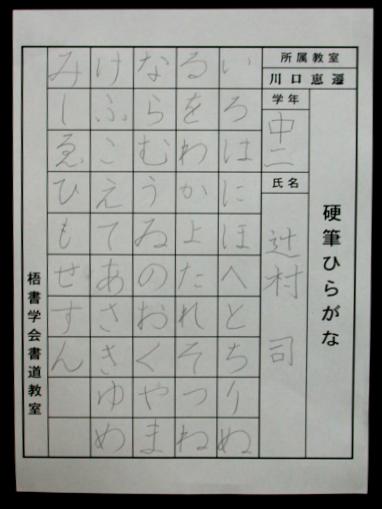 硬筆ひらがな
所属教室
川口
学年
中二
氏名
辻村司
いろはにほへとちりぬ
るをわかよたれそつね
ならむうゐのおくやま
けふこえてあさきゆめ
みしゑひもせすん
梧書学会書道教室